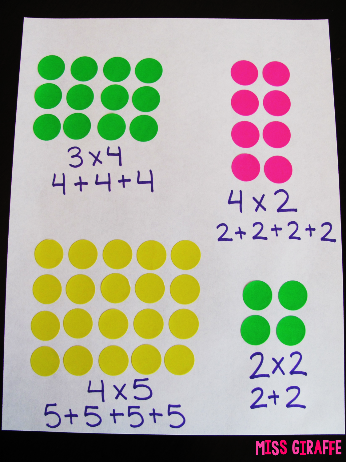 3x4
4+4+4
4x2
2+2+2+2
4x5
5+5+5+5
2x2
2+2
MISS GIRAFFE